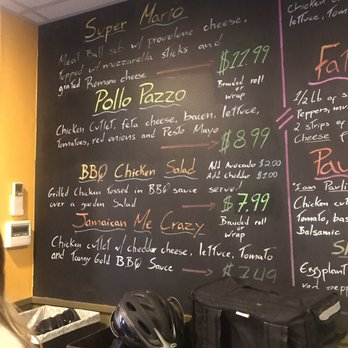 Super Mario
Meat Ball sub w/ provolone cheese,
topped w/ mozzarella sticks and
grated Romano cheese
$11.99
Braided roll
or
wrap
Pollo Pazzo
Chicken Cutlet, feta cheese, bacon, lettuce,
Tomatoes, red onions and Pesto Mayo
$8.99
BBQ Chicken Salad
Add Avocado $2.00
Add cheddar $1.00
Grilled Chicken tossed in BBQ sauce serve
over a garden Salad
$7.99
Braided roll
or
wrap
Jamaican Me Crazy
Chicken cutlet w/ cheddar cheese, lettuce, Tomato
and Tangy Gold BBQ Sauce
$7.49
Chicken cu
lettuce, Tom
Fat
1/2 lb of s
Peppers, mu
2 strips of
Cheese f
Pau
"I am Pauli
Chicken cut
Tomato, bas
Balsamic
S
Eggplant
red pepp